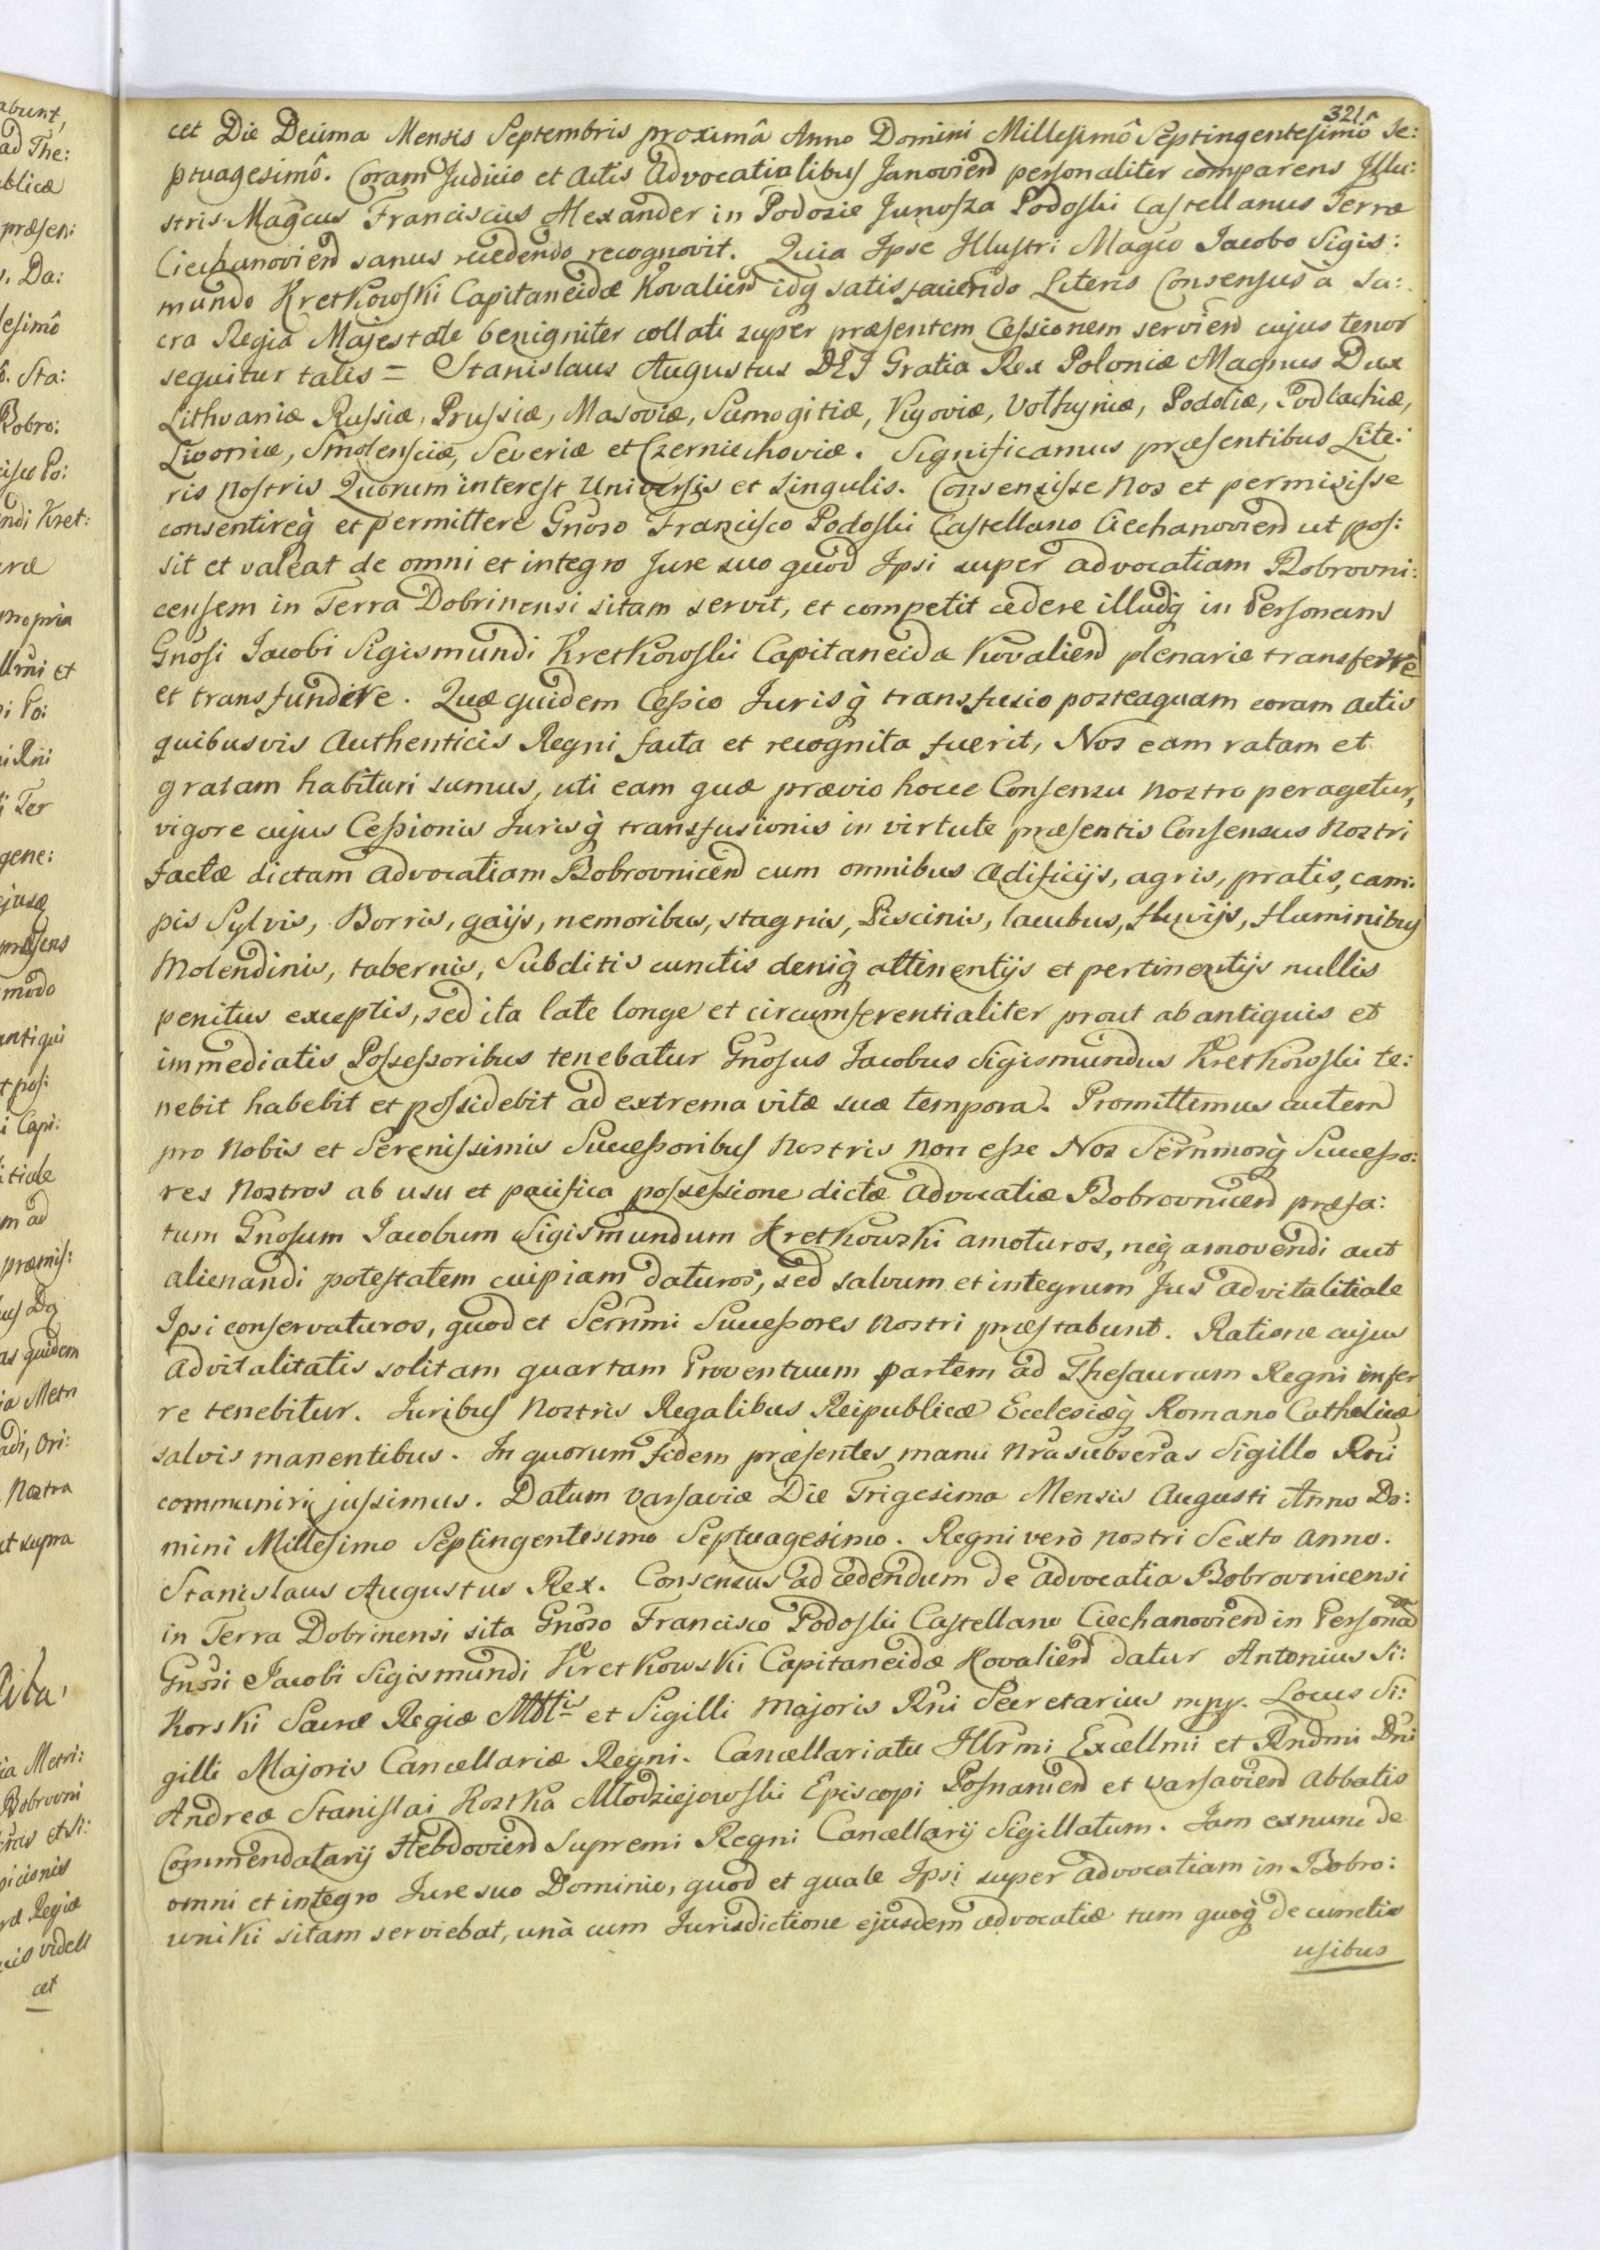 321r
cet Die Decima Mensis Septembris proximâ Anno Domini Millesimô Septingentesimô Se:
ptuagesimô. Coram Judicio et Actis Advocatialibus Janovien personaliter comparens Illu:
stris Magcus Franciscus Alexander in Podosie Junosza Podoski Castellanus Terræ
Ciechanovien sanus recedendo recognovit. Quia Ipse Illustri Magco Iacobo Sigis:
mundo Kretkowski Capitaneidæ Kovalien idq satisfaciendo Literis Consensus a Sa:
cra Regia Majestate benigniter collati super præsentem Cessionem servien cujus tenor
sequitur talis = Stanislaus Augustus DEI Gratia Rex Poloniæ Magnus Dux
Lithvaniæ Russiæ, Prussiæ, Masoviæ, Samogitiæ, Kyoviæ, Volhyniæ, Podoliæ, Podlachiæ,
Livoniæ, Smolensciæ, Severiæ et Czerniechoviæ. Significamus præsentibus Lite:
ris Nostris Quorum interest Universis et Singulis. Consensisse Nos et permisisse
consentireq̀ et permittere Gnoso Francisco Podoski Castellano Ciechanovien ut pos:
sit et valeat de omni et integro Jure suo quod Ipsi super advocatiam Bobrovni:
censem in Terra Dobrinensi sitam servit, et competit cedere illudq̀ in Personam
Gnosi Iacobi Sigismundi Kretkowski Capitaneida Kovalien plenarie transferre
et transfundere. Quæ quidem Cessio Jurisq̀ transfusio posteaquam coram actis
quibusvis Authenticis Regni facta et recognita fuerit, Nos eam ratam et
gratam habituri sumus, uti eam quæ prævio hocce Consensu nostro peragetur,
vigore cujus Cessionis Jurisq̀ transfusionis in virtute præsentis Consensus Nostri
factæ dictam advocatiam Bobrovnicen cum omnibus Adificijs, agris, pratis, cam:
pis Sylvis, Borris, gaijs, nemoribus, stagnis, Piscinis, lacubus, fluvijs, fluminibus
Molendinis, tabernis, Subditis cunctis deniq̀ attinentijs et pertinentijs nullis
penitus exceptis, sed ita late longe et circumferentialiter prout ab antiquis et
immediatis Possessoribus tenebatur Gnosus Jacobus Sigismundus Kretkowski te:
nebit habebit et possidebit ad extrema vitæ suæ tempora. Promittimus autem
pro Nobis et Serenissimis Successoribus Nostris non esse Nos Sernmosq̀ Successo:
res Nostros ab usu et pacifica possessione dictæ advocatiæ Bobrovnicen præfa:
tum Gnosum Iacobum Sigismundum Kretkowski amoturos, neq̀ amovendi aut
alienandi potestatem cuipiam daturos, sed salvum et integrum Jus advitalitiale
Ipsi conservaturos, quod et Sernmi Successores Nostri præstabunt. Ratione cujus
advitalitatis solitam quartam Proventuum partem ad Thesaurum Regni infer
re tenebitur. Juribus Nostris Regalibus Reipublicæ Ecclesiæq̀ Romano Catholicæ
salvis manentibus. In quorum fidem præsentes manu nra subscras Sigillo Rni
communiri jussimus. Datum Varsaviæ Die Trigesima Mensis Augusti Anno Do:
mini Millesimo Septingentesimo Septuagesimo. Regni verò nostri Sexto anno.
Stanislaus Augustus Rex. Consensus ad cedendum de advocatia Bobrovnicensi
in Terra Dobrinensi sita Gnoso Francisco Podoski Castellano Ciechanovien in Personam
Gnosi Jacobi Sigismundi Kretkowski Capitaneidæ Kovalien datur Antonius Si:
korski Sacræ Regiæ Mttis et Sigilli Majoris Rni Secretarius mpp. Locus Si:
gilli Majoris Cancellariæ Regni. Cancellariatu Illrmi Excellmi et Rndmi Dni
Andreæ Stanislai Kostka Młodziejowski Episcopi Posnanien et Varsavien Abbatis
Commendatarij Hebdovien Supremi Regni Cancellarij Sigillatum. Jam exnunc de
omni et integro Jure suo Dominio, quod et quale Ipsi super advocatiam in Bobro:
wniki sitam serviebat, unà cum Jurisdictione ejusdem advocatiæ tum quoq̀ de cunctis
usibus